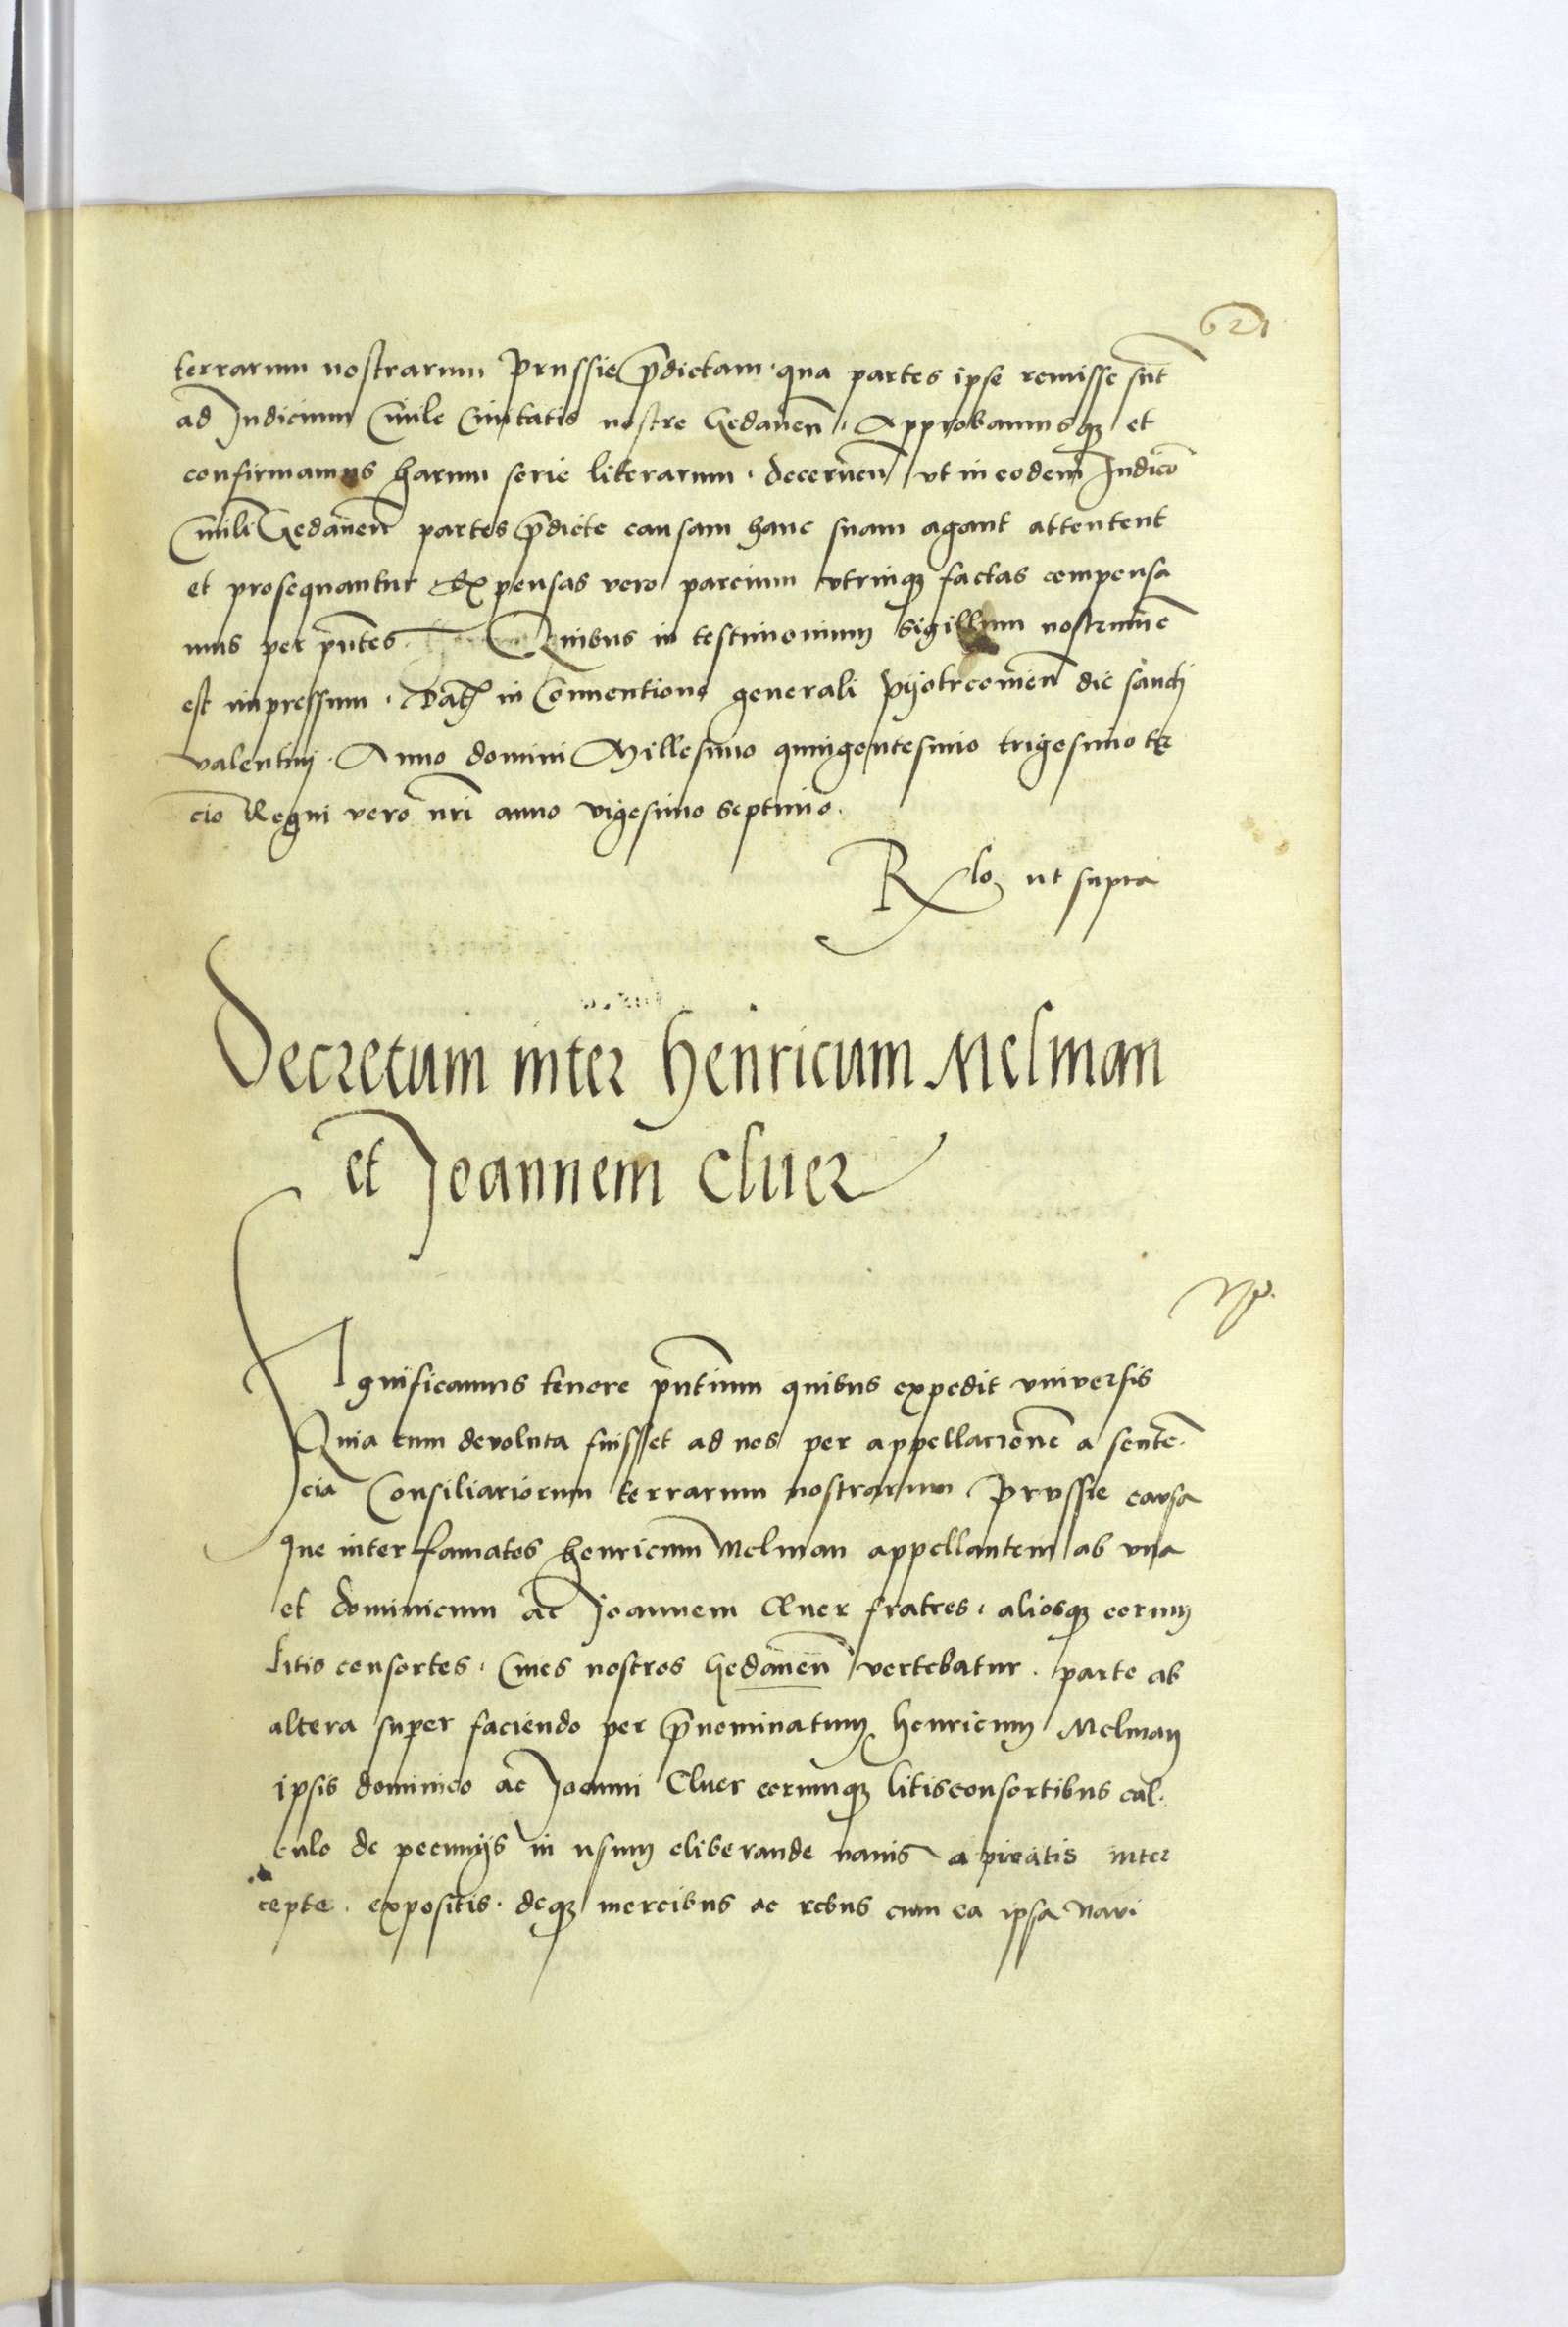 621
terrarum nostrarum Prussie p̄dictam · qua partes ipse remisse sūt
ad Judicium Ciuile Ciuitatis nostre Gedaneñ · Approbamusqꝫ et
confirmamus harum serie literarum · decerneñ vt in eodem Judicō
Ciuili Gedaneñ partes p̄dicte causam hanc suam agant attentent
et prosequantur Expensas vero parcium vtrinqꝫ factas compensa
mus per pn̄tes Quibus in testimonium sigillum nostrum ē
est impressum · Dat̄ in Conuentione generali Pijotrcouieñ die sancti
valentini · Anno domini Millesimo quingentesimo trigesimo ter
cio Regni vero nr̄i anno vigesimo septimo ·
Rlo ut supra
Decretum inter Henricum Melman
et Joannem Cluer
Significamus tenore pn̄tium quibus expedit vniuersis
Quia cum devoluta fuisset ad nos per appellacionē a senten·
cia Consiliariorum terrarum nostrarum Prussie causa
que inter famatos Henricum Melman appellantem ab vna
et dominicum ac Joannem Cluer fratres · aliosqꝫ eorum
litis consortes · Ciues nostros Gedaneñ vertebatur · parte ab
altera super faciendo per p̄nominatum Henricum Melman
ipsis dominico ac Joanni Cluer eorumqꝫ litisconsortibus cal·
culo de pecunijs in usum eliberande nauis a piratis inter
cepte · expositis · deqꝫ mercibus ac rebus cum ea ipsa Navi